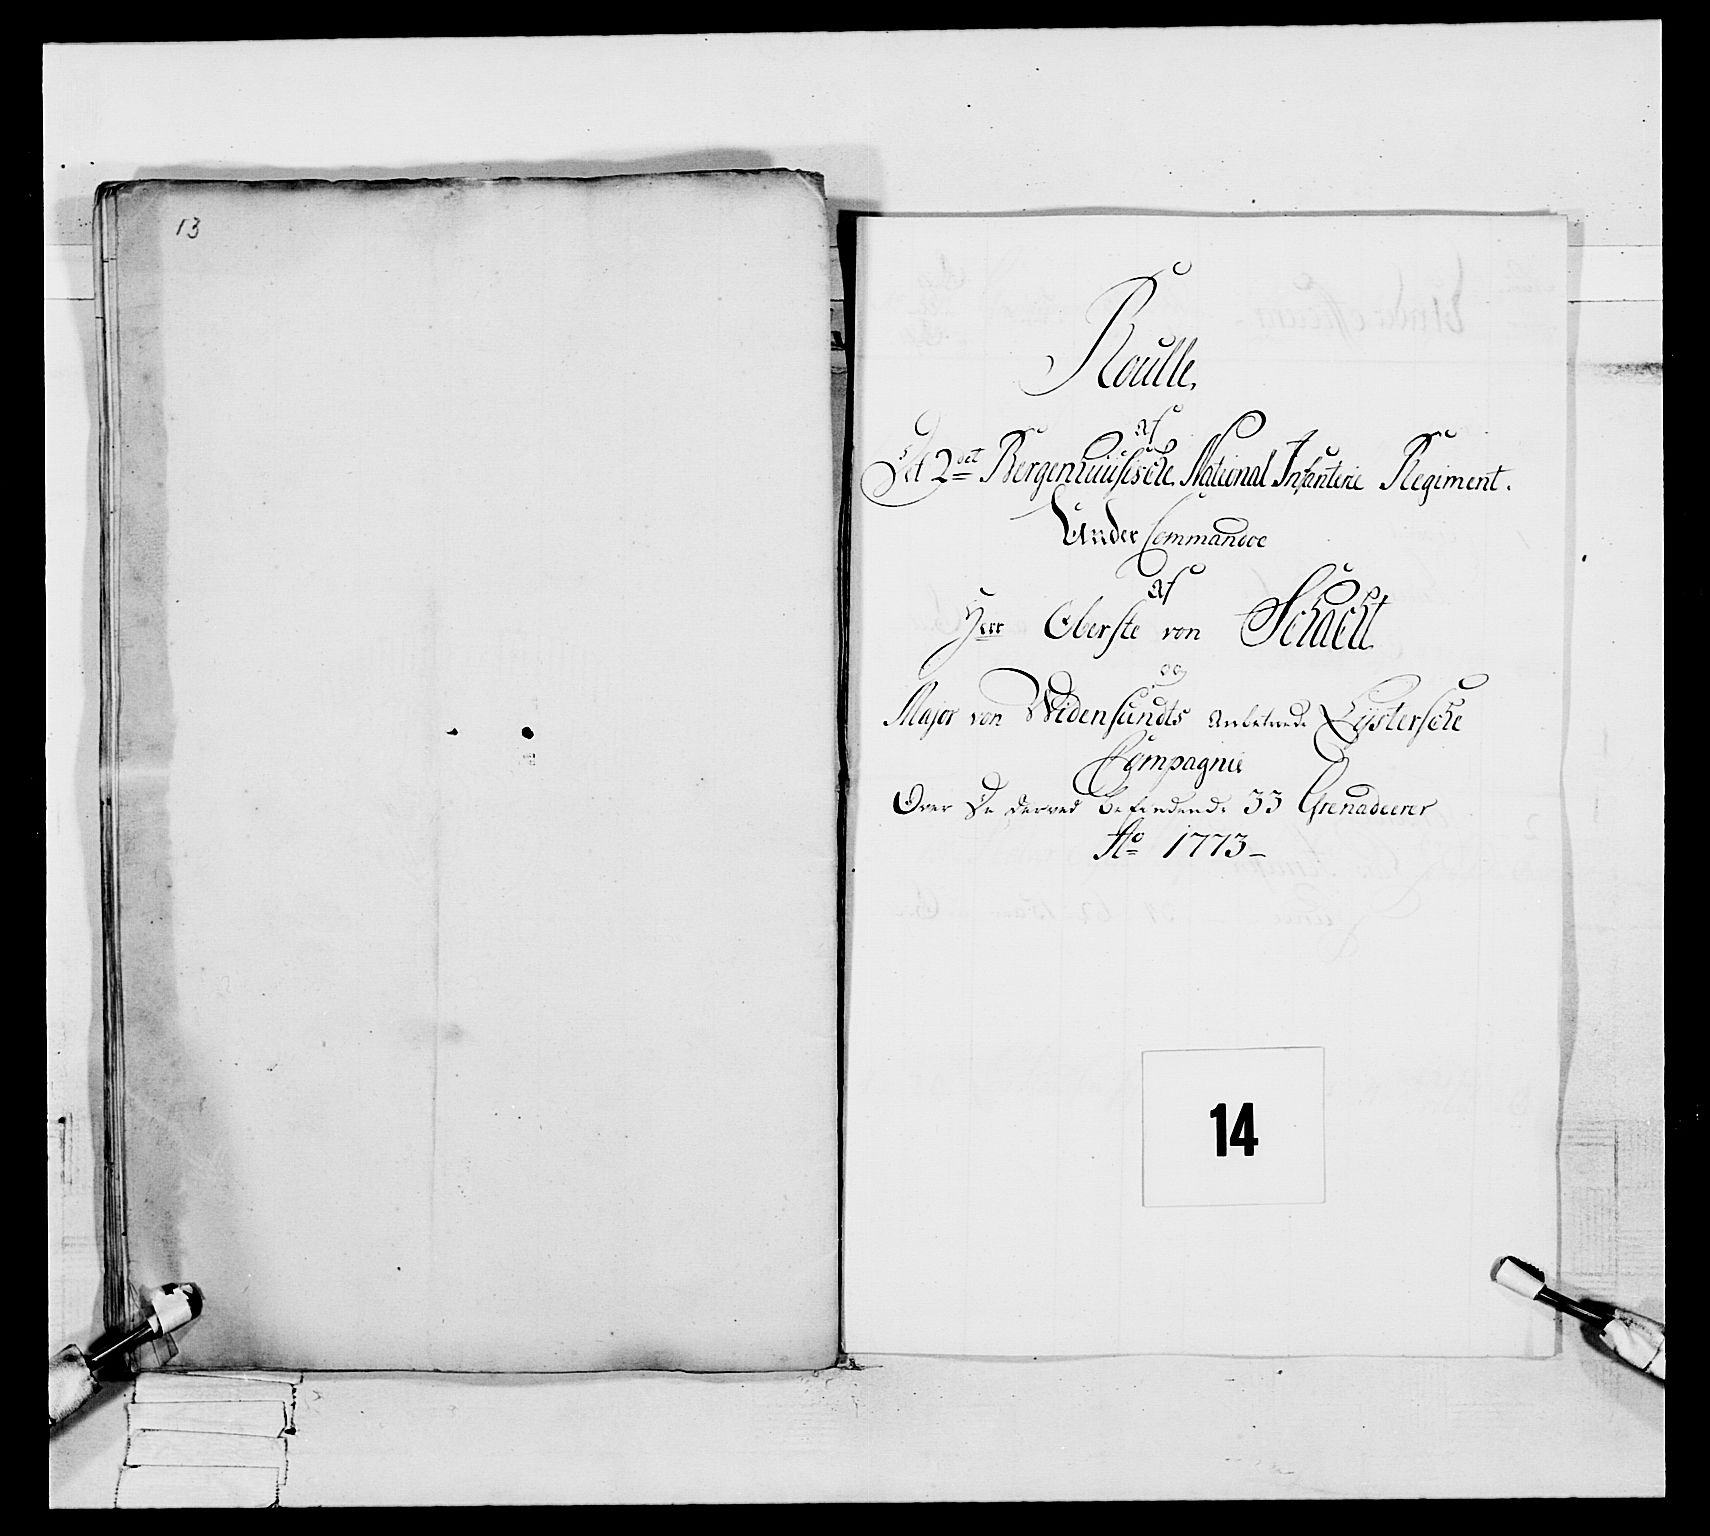 13
Roulle,
af
Det 2det Bergenhuusische National Infanterie Regiment.
Under Commandoe
af
Herr Oberste von Schacht
og
Major von Widensundts Anbetroede Lÿstersche
Compagnie
Over De derved befindende 33 Grenadeerer
Ao 1773
14